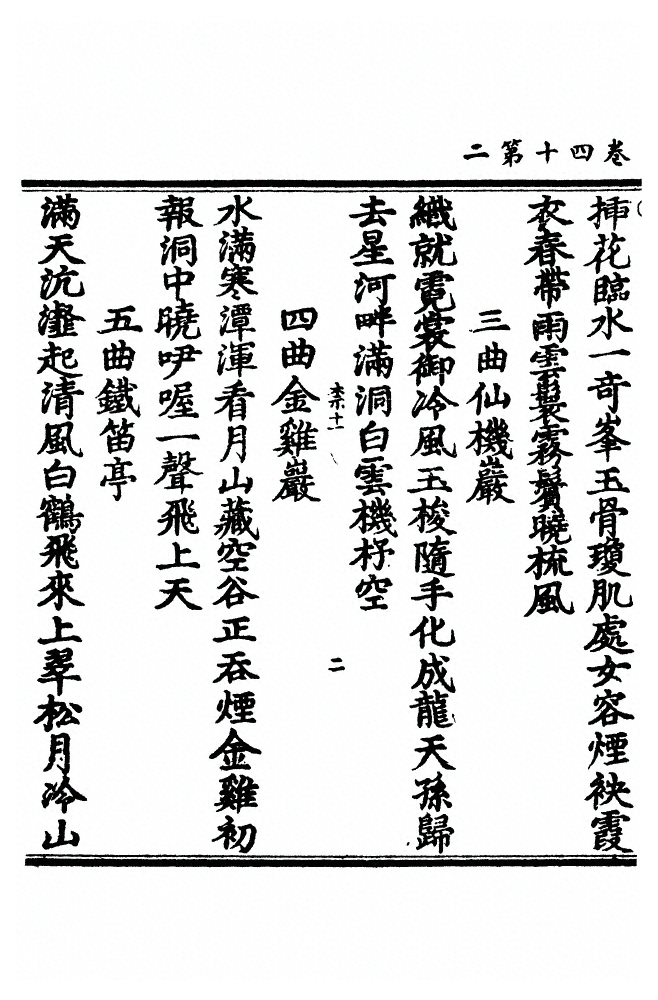 卷四十第二
揷花臨水一奇峯玉骨瓊肌處女容煙袂霞
衣春帶雨雲鬟霧鬢曉梳風
三曲仙機巖
織就霓裳御冷風玉梭隨手化成龍天孫歸
去星河畔滿洞白雲機杼空
十一
二
四曲金雞巖
水滿寒潭渾看月山藏空谷正吞煙金雞初
報洞中曉咿喔一聲飛上天
五曲鐵笛亭
滿天沆瀣起清風白鶴飛來上翠松月冷山